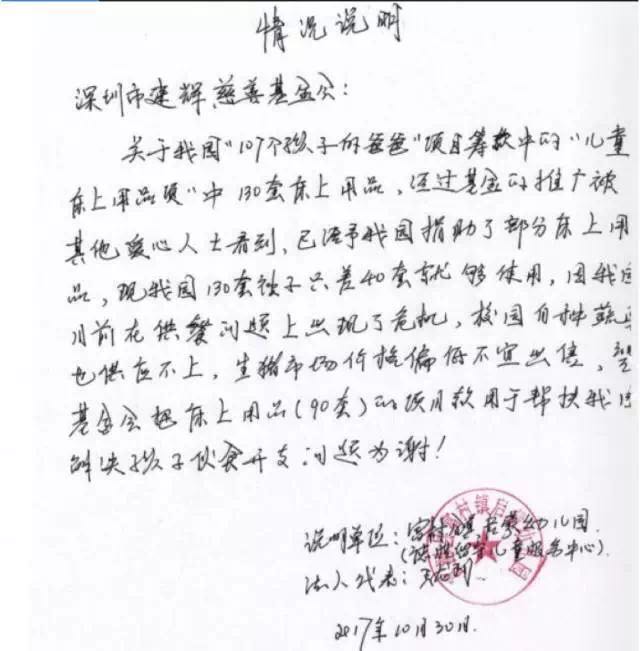 情况说明
深圳市建辉慈善基金会:
关于我园“107个孩子的爸爸”项目筹款中的“儿童
床上用品项”中130套床上用品,通过基金的推广被
其他爱心人士看到,已给予我园捐助了部分床上用
品,现我园130套被子只差40套就够使用,因我园
目前在供餐问题上出现了危机,校园自种蔬菜
也供应不上,生猪市场价格偏低不宜出售,望
基金会把床上用品(90套)的项目款用于帮扶我园
解决孩子伙食开支问题为谢!
说明单位:富村镇启蒙幼儿园
儿童服务中心)
法人代表:
2017年10月30日.